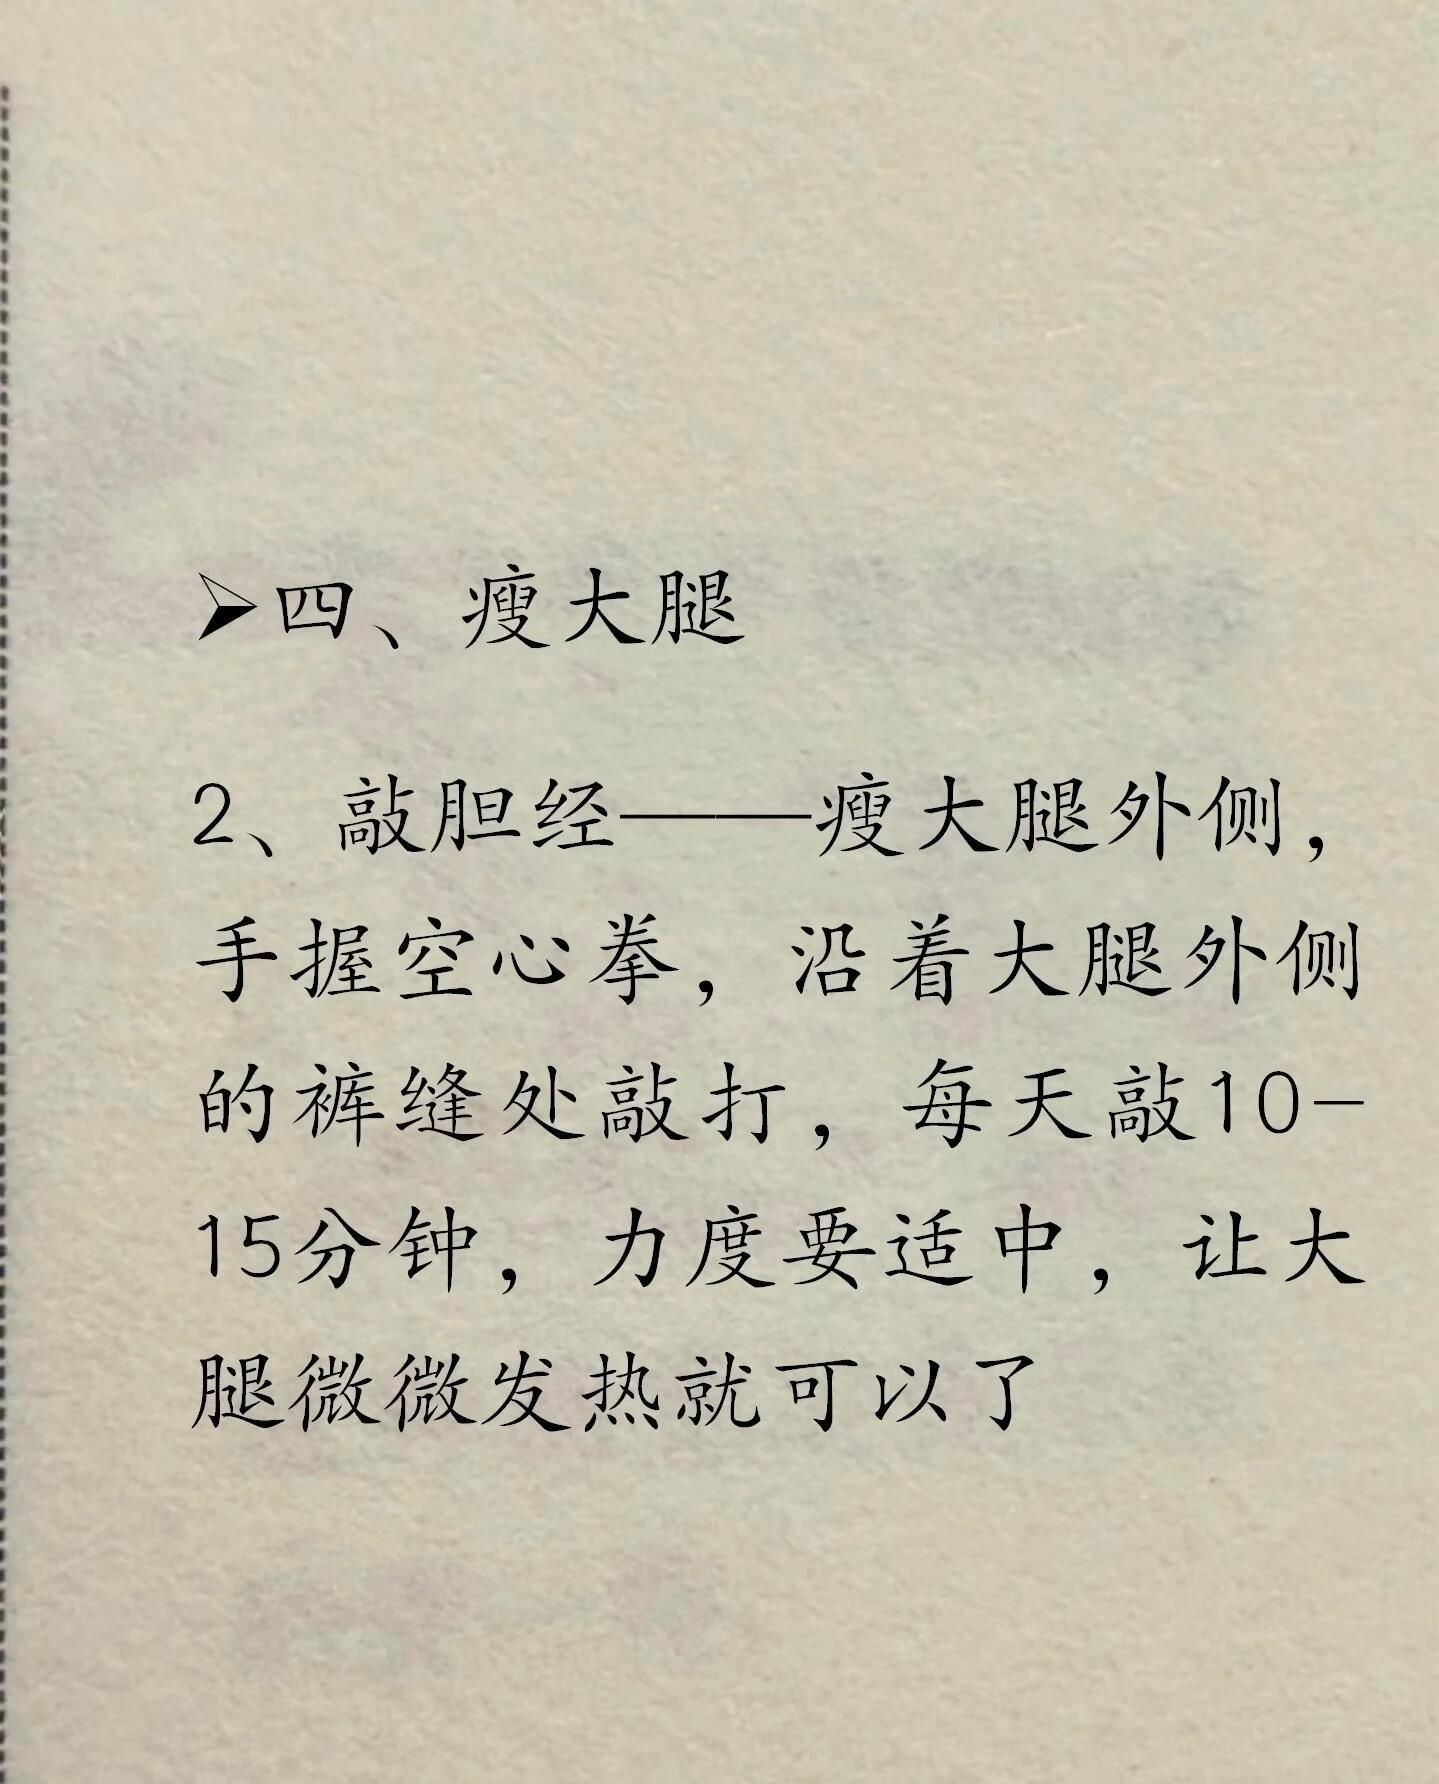 ➢四、瘦大腿
2、敲胆经——瘦大腿外侧，
手握空心拳，沿着大腿外侧
的裤缝处敲打，每天敲10-
15分钟，力度要适中，让大
腿微微发热就可以了